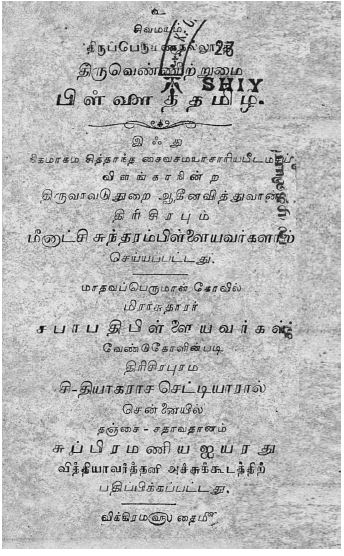 உ
சிவமயம்.
திருப்பெருமணநல்லூர்த்
திருவெண்ணீற்றுமை
SHIY
பிள்ளைத்தமிழ்.
இஃது
நிகமாகம சித்தாந்த சைவசமயாசாரியபீடமாய்
விளங்காநின்ற
திருவாவடுதுறை ஆதீனவித்துவான்
திரிசிரபும்
மீனாட்சி சுந்தரம்பிள்ளையவர்களாற்
செய்யப்பட்டது.
மாதவப்பெருமாள் கோவில்
மிராசுதாரர்
சபாபதிபிள்ளையவர்கள்
வேண்டுகோளின்படி
திரிசிரபுரம
சி-தியாகராச செட்டியாரால்
சென்னையில்
தஞ்சை - சதாவதானம்
சுப்பிரமணிய ஐயரது
வித்தியாவர்த்தனி அச்சுக்கூடத்திற்
பதிப்பிக்கப்பட்டது.
விக்கிரம௵ தை௴